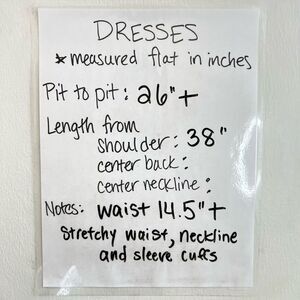 DRESSES
* measured flat in inches
Pit to pit: 26"+
Length from
shoulder: 38"
center back:
center neckline:
Notes: waist 14.5"+
stretchy waist, neckline
and sleeve cuffs